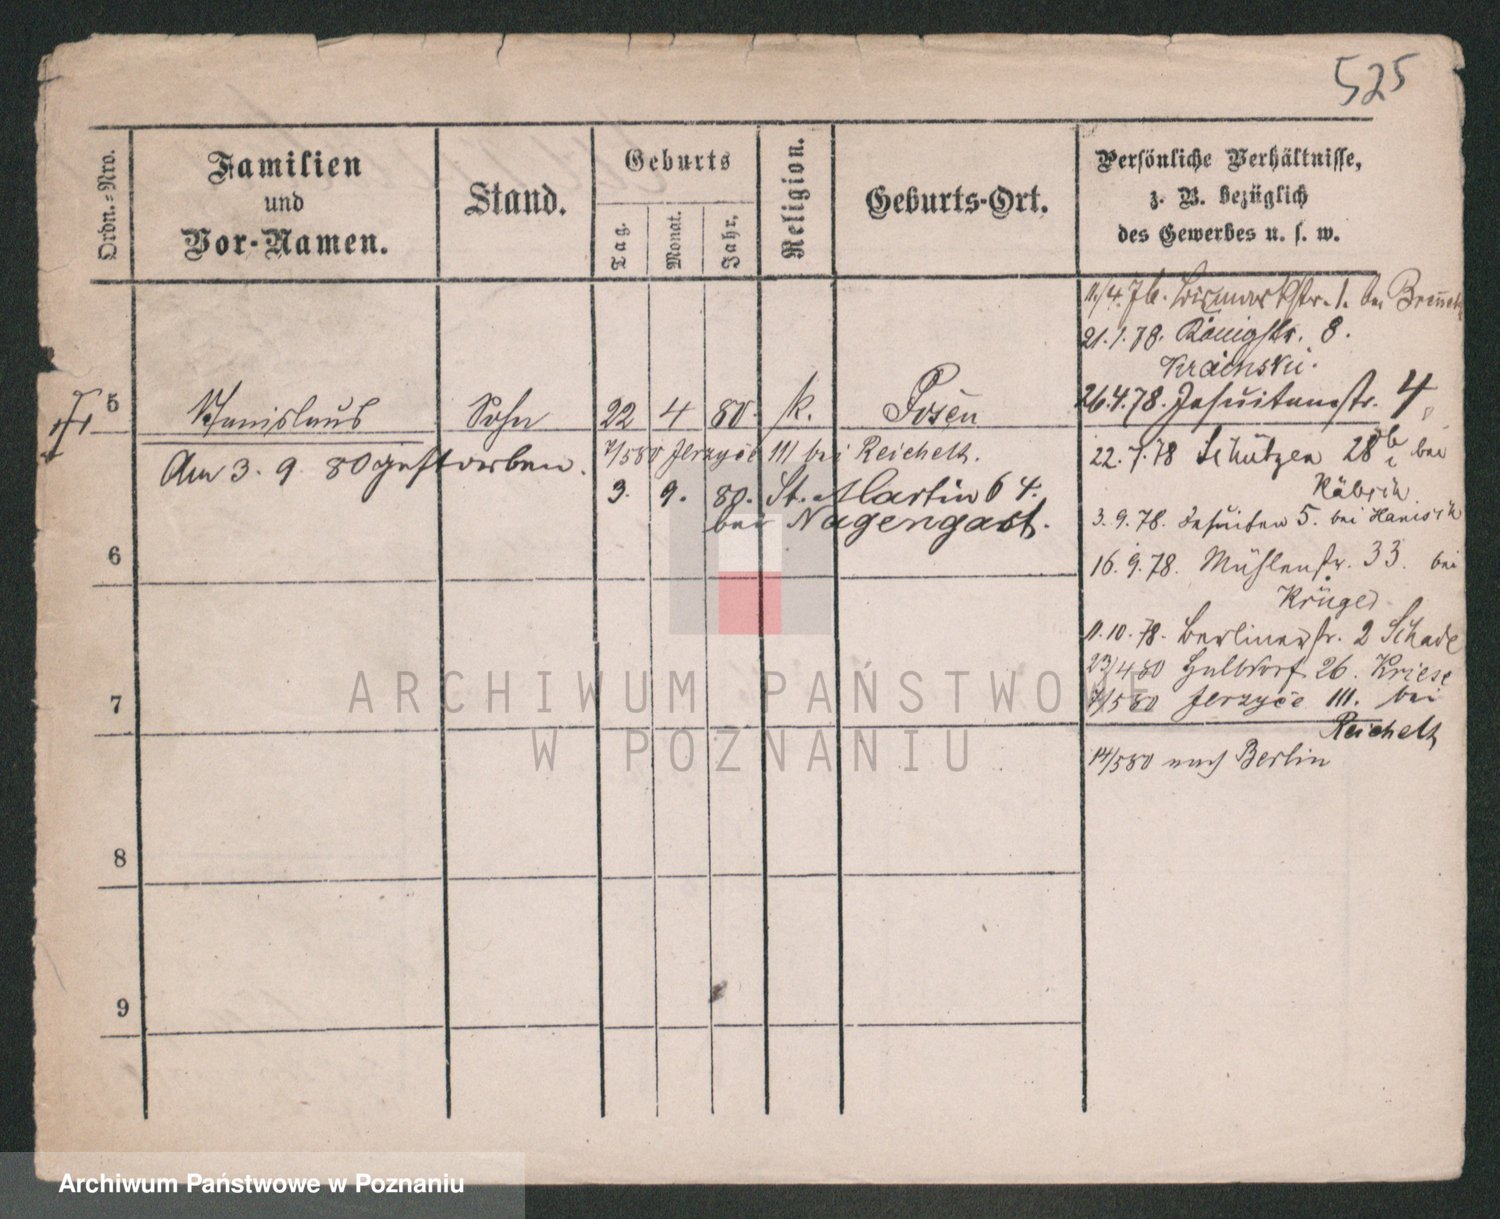 525
Ordn.-Nro.
Familien
und
Vor-Namen.
Stand.
Geburts
Tag.
Monat.
Jahr.
Religion.
Geburts-Ort.
Persönliche Verhältnisse,
z. B. bezüglich
des Gewerbes u. s. w.
11/4.76. Bismarkstr. 1. bei
21.1.78. Königstr. 8.
Krainski.
5 Stanislaus Sohn 22 4 80. k. Posen
26.4.78. Jesuitenstr. 4
Am 3. 9. 80 gestorben. 7/5 80 Jerzyce 111 bei Reichelt.
22.7.78 Schützen 28b bei
3. 9. 80. St. Martin 64.
bei Nagengast.
3.9.78. Jesuiten 5. bei
6
16.9.78. Mühlenstr. 33. bei
Krüger
11.10.78. Berlinerstr. 2 Schade
23/4 80 Halbdorf 26. Kriese
7/5 80 Jerzyce 111. bei
Reichelt
7
14/5 80 nach Berlin
8
9
ARCHIWUM PAŃSTWO
W POZNANIU
Archiwum Państwowe w Poznaniu